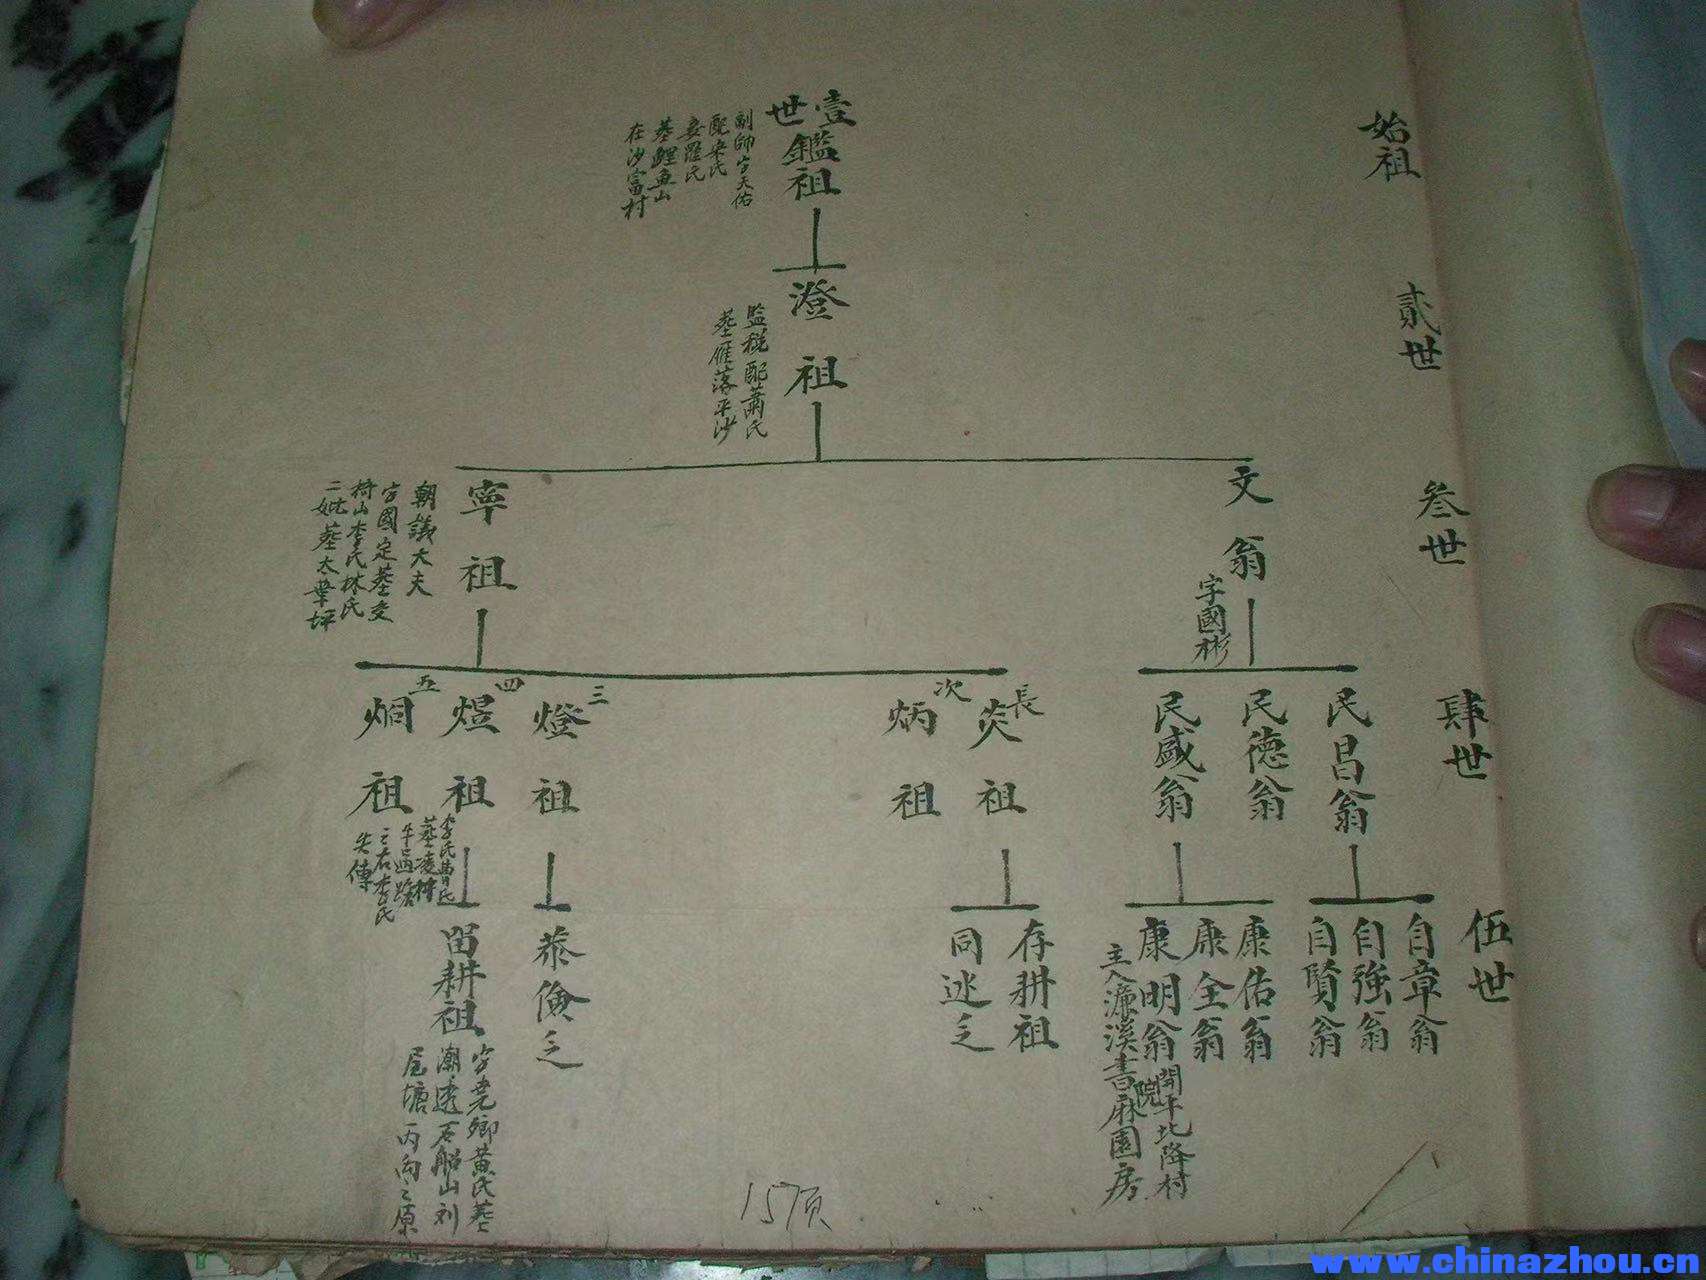 始祖
貳世
叁世
肆世
伍世
壹世
鑑祖
副帥字天佑
配宋氏
妾羅氏
墓鯉魚山
在沙富村
澄祖
監稅配蕭氏
墓雁落平沙
文翁
字國彬
寧祖
朝議大夫
字國定墓交
椅山李氏林氏
二妣墓太華坪
民昌翁
民德翁
民盛翁
長
炎祖
次
炳祖
三
燈祖
四
煜祖
五
烱祖
李氏曹氏
墓凌村
牛過路
之右李氏
失傳
自章翁
自強翁
自賢翁
康佑翁
康全翁
康明翁
開平北降村
主入濂溪書院麻園房
存耕祖
同迯乏
恭儉乏
留耕祖
字堯卿黃氏墓
潮透石船山刘
屋塘丙向之原
157页
www.chinazhou.cn